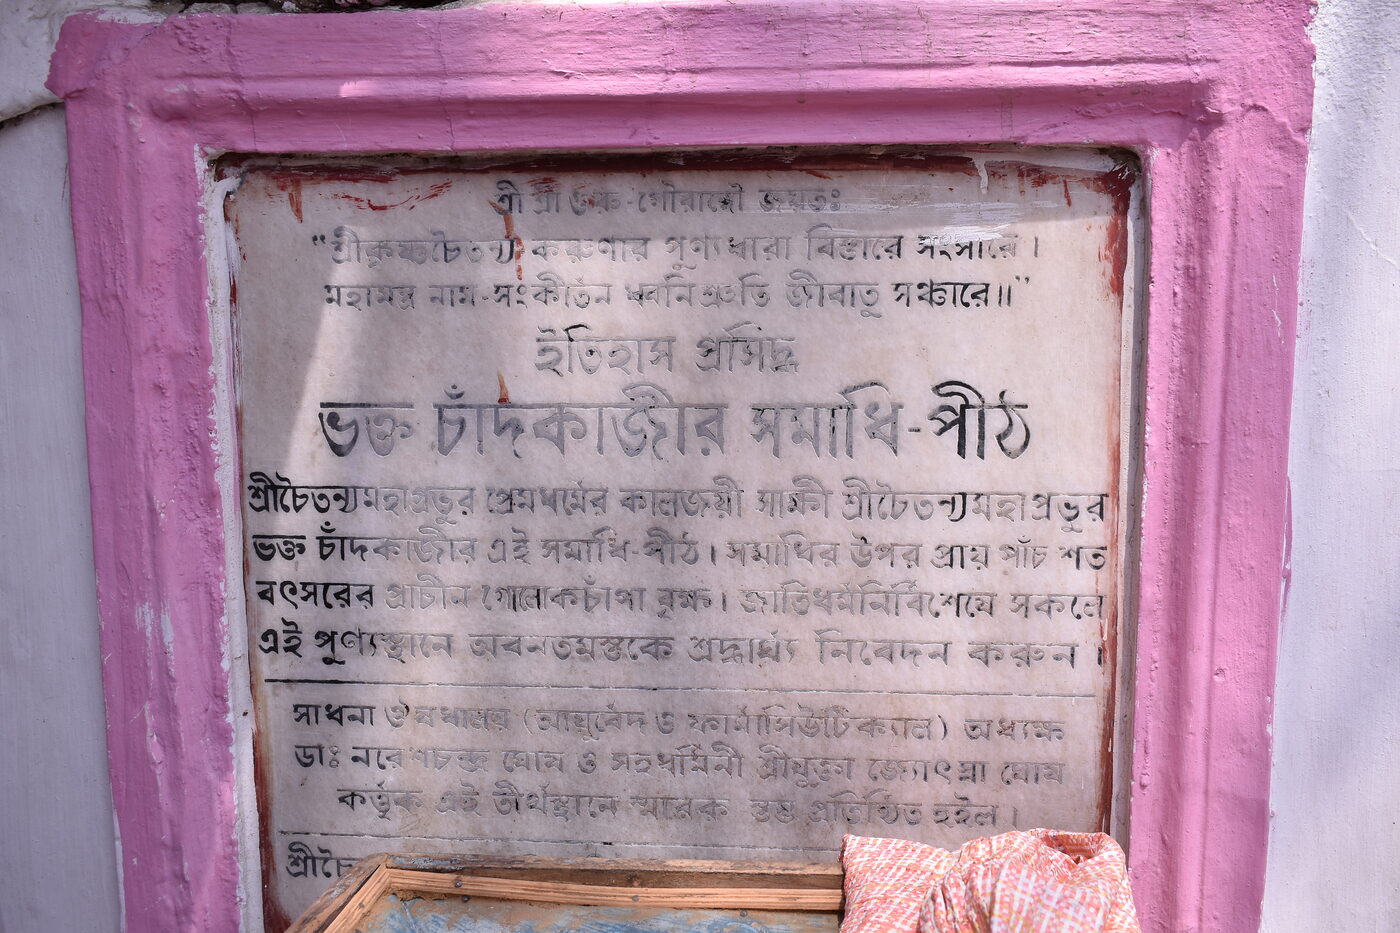 শ্রী শ্রী গুরু-গৌরাঙ্গৌ জয়তঃ
“শ্রীকৃষ্ণচৈতন্য করুণার পুণ্যধারা বিস্তারে সংসারে।
মহামন্ত্র নাম-সংকীর্তন ধ্বনিশ্রুতি জীবাতু সঞ্চারে॥”
ইতিহাস প্রসিদ্ধ
ভক্ত চাঁদকাজীর সমাধি-পীঠ
শ্রীচৈতন্যমহাপ্রভুর প্রেমধর্মের কালজয়ী সাক্ষী শ্রীচৈতন্যমহাপ্রভুর
ভক্ত চাঁদকাজীর এই সমাধি-পীঠ। সমাধির উপর প্রায় পাঁচ শত
বৎসরের প্রাচীন গোলোকচাঁপা বৃক্ষ। জাতিধর্মনির্বিশেষে সকলে
এই পুণ্যস্থানে অবনতমস্তকে শ্রদ্ধার্ঘ্য নিবেদন করুন।
সাধনা ঔষধালয় (আয়ুর্বেদ ও ফার্মাসিউটিক্যাল) অধ্যক্ষ
ডাঃ নরেশচন্দ্র ঘোষ ও সহধর্মিনী শ্রীযুক্তা জ্যোৎস্না ঘোষ
কর্ত্তৃক এই তীর্থস্থানে স্মারক স্তম্ভ প্রতিষ্ঠিত হইল।